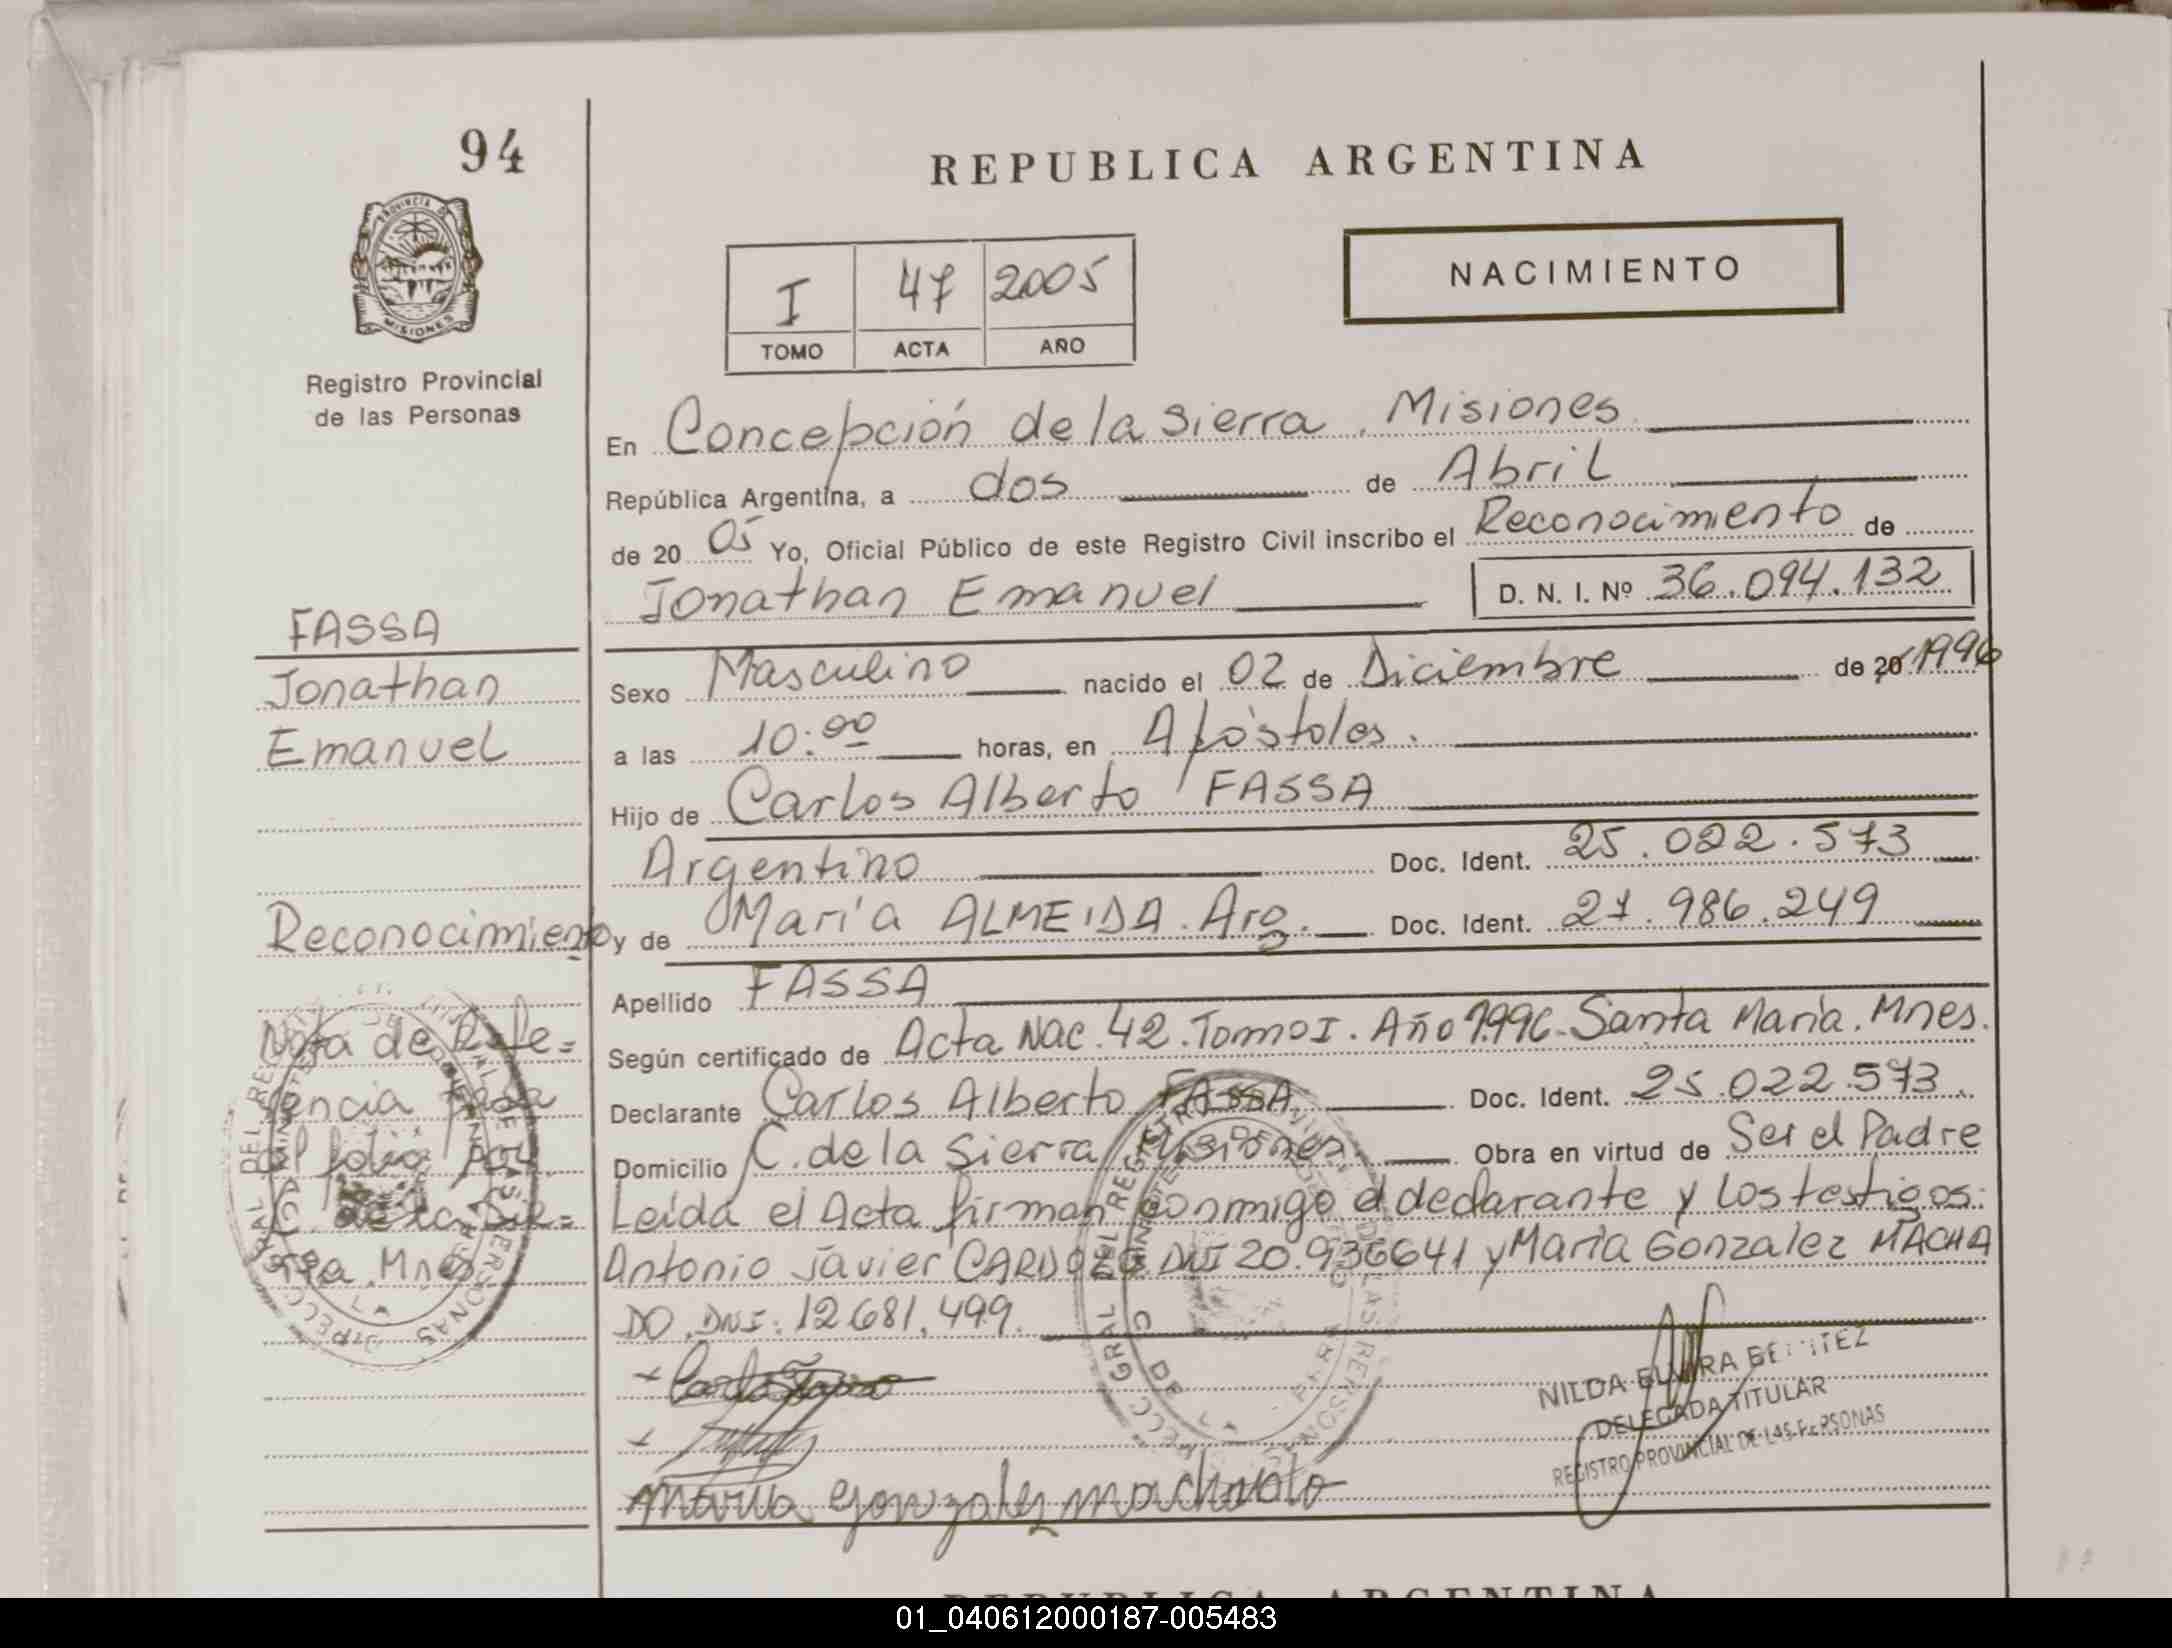 94
REPUBLICA ARGENTINA
PROVINCIA DE
MISIONES
Registro Provincial
de las Personas
NACIMIENTO
I 47 2005
TOMO ACTA AÑO
En Concepción de la Sierra, Misiones
República Argentina, a dos de Abril
de 20 05 Yo, Oficial Público de este Registro Civil inscribo el Reconocimiento de
Jonathan Emanuel D. N. I. Nº 36.094.132
FASSA
Jonathan
Emanuel
Sexo Masculino nacido el 02 de Diciembre de 20 1996
a las 10:00 horas, en Apóstoles.
Hijo de Carlos Alberto FASSA
Argentino Doc. Ident. 25.022.573
Reconocimiento
y de María ALMEIDA. Arg. Doc. Ident. 27.986.249
Apellido FASSA
Según certificado de Acta Nac. 42. Tomo I. Año 1996. Santa María. Mnes.
Declarante Carlos Alberto FASSA Doc. Ident. 25.022.573.
Domicilio C. de la Sierra Misiones. Obra en virtud de Ser el Padre
Leída el Acta firman conmigo el declarante y los testigos:
Antonio Javier CARDOZO DNI 20.936641 y María Gonzalez MACHA
DO. DNI: 12.681.499.
Nota de Refe=
rencia
al folio
C. de la Sie=
rra. Mnes.
NILDA ELVIRA BENITEZ
DELEGADA TITULAR
REGISTRO PROVINCIAL DE LAS PERSONAS
Maria Gonzalez machado
REPUBLICA ARGENTINA
01_040612000187-005483